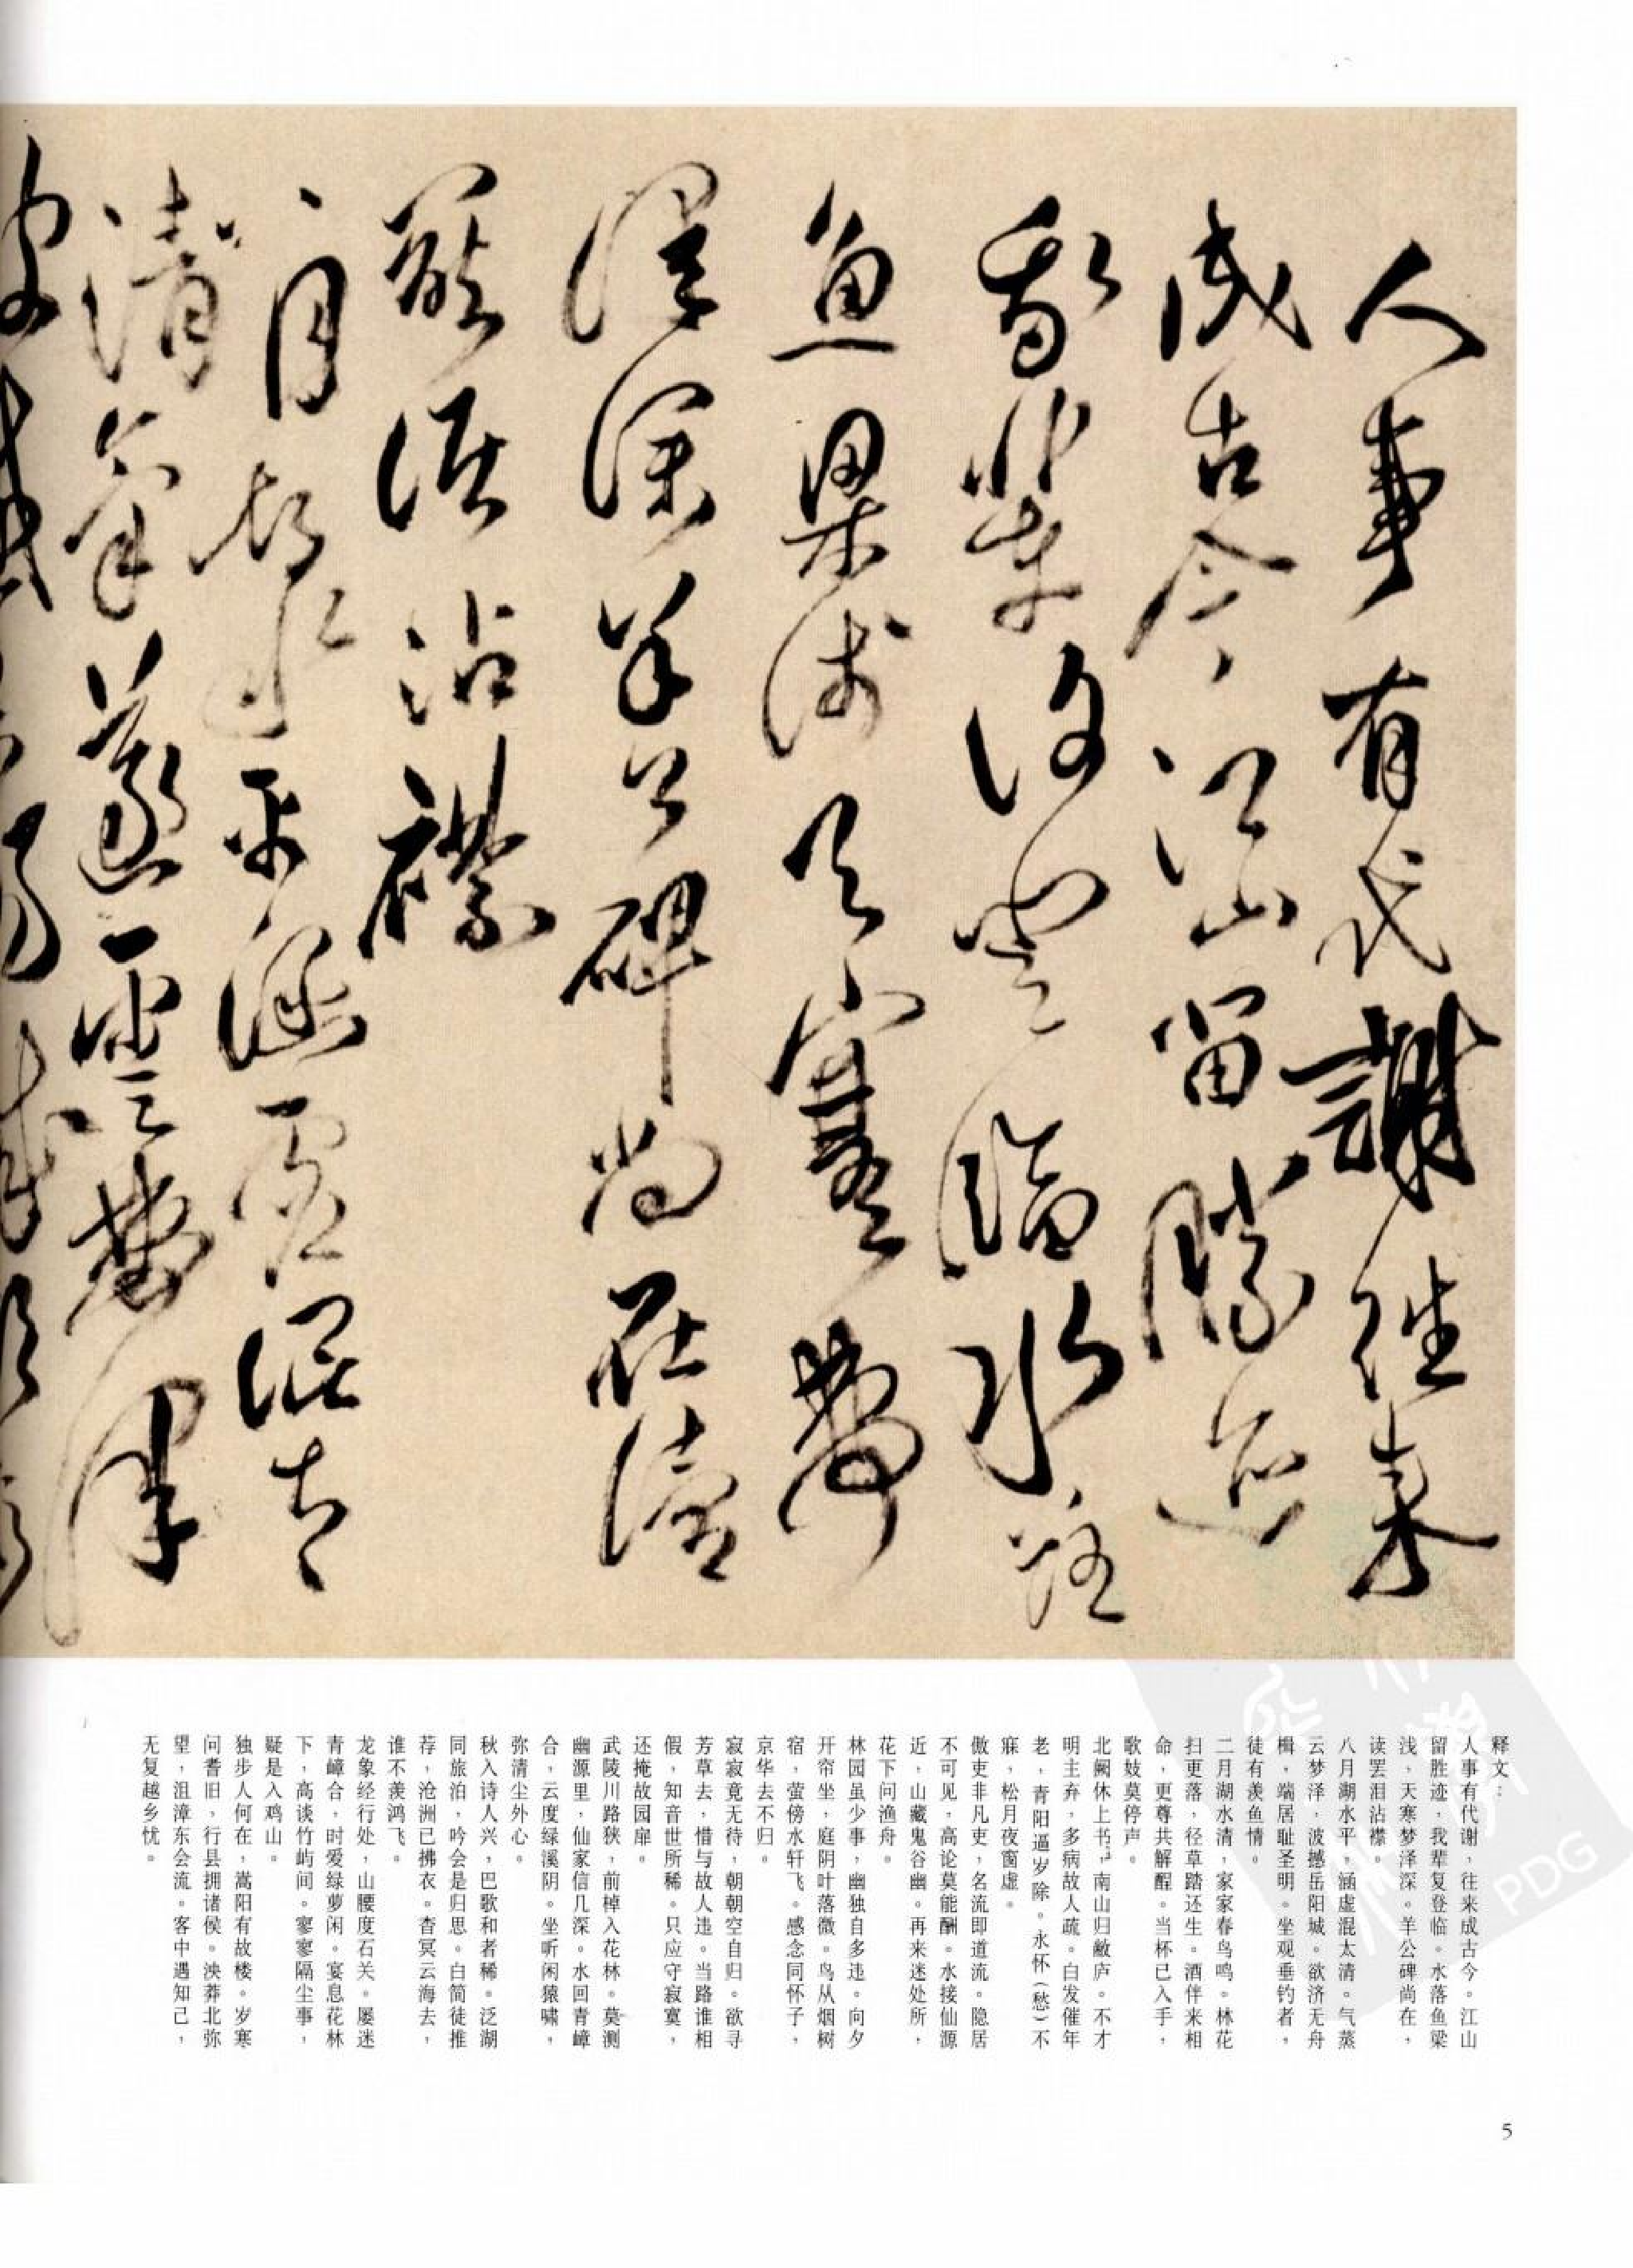 人事有代謝往来
成古今江山留勝迹
我輩復登臨水落
魚梁淺天寒夢
澤深羊公碑尚在讀
罷淚沾襟
八月湖水平涵虛混太
清氣蒸雲夢澤
波撼岳陽城欲濟
释文：
人事有代谢，往来成古今。江山
留胜迹，我辈复登临。水落鱼梁
浅，天寒梦泽深。羊公碑尚在，
读罢泪沾襟。
八月湖水平，涵虚混太清。气蒸
云梦泽，波撼岳阳城。欲济无舟
楫，端居耻圣明。坐观垂钓者，
徒有羡鱼情。
二月湖水清，家家春鸟鸣。林花
扫更落，径草踏还生。酒伴来相
命，更尊共解酲。当杯已入手，
歌妓莫停声。
北阙休上书，南山归敝庐。不才
明主弃，多病故人疏。白发催年
老，青阳逼岁除。永怀（愁）不
寐，松月夜窗虚。
傲吏非凡吏，名流即道流。隐居
不可见，高论莫能酬。水接仙源
近，山藏鬼谷幽。再来迷处所，
花下问渔舟。
林园虽少事，幽独自多违。向夕
开帘坐，庭阴叶落微。鸟从烟树
宿，萤傍水轩飞。感念同怀子，
京华去不归。
寂寂竟无待，朝朝空自归。欲寻
芳草去，惜与故人违。当路谁相
假，知音世所稀。只应守寂寞，
还掩故园扉。
武陵川路狭，前棹入花林。莫测
幽源里，仙家信几深。水回青嶂
合，云度绿溪阴。坐听闲猿啸，
弥清尘外心。
秋入诗人兴，巴歌和者稀。泛湖
同旅泊，吟会是归思。白简徒推
荐，沧洲已拂衣。杳冥云海去，
谁不羡鸿飞。
龙象经行处，山腰度石关。屡迷
青嶂合，时爱绿萝闲。宴息花林
下，高谈竹屿间。寥寥隔尘事，
疑是入鸡山。
独步人何在，嵩阳有故楼。岁寒
问耆旧，行县拥诸侯。泱莽北弥
望，沮漳东会流。客中遇知己，
无复越乡忧。
5
PDG